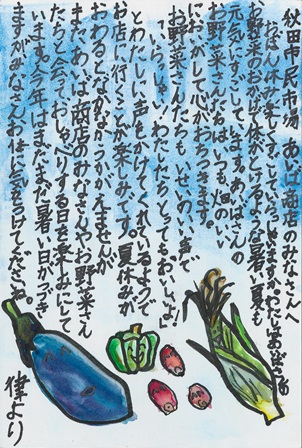 秋田市民市場 あいば商店のみなさんへ
お盆休み楽しくすごしていらっしゃいますか。わたしはあいばさんの
お野菜のおかげで体がとけるような暑い夏も
元気にすごしています。あいばさんの
お野菜さんたちは、いつも畑のいい
においがして心がおちつきます。
お野菜さんたちも、いせいのいい声で
「いらっしゃい!わたしたちとってもおいしいよ!」
とわたしに声をかけてくれているようで
お店に行くことが楽しみです。夏休みが
おわるとなかなかうかがえませんが
また、あいば商店のみなさんやお野菜さん
たちと会って、おしゃべりする日を楽しみにして
います。今年はまだまだ暑い日がつづき
ますがみなさんお体に気をつけてくださいね。
律より